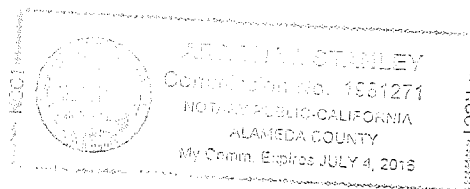 STANLEY
Commission No. 1931271
NOTARY PUBLIC-CALIFORNIA
ALAMEDA COUNTY
My Comm. Expires JULY 4, 2015